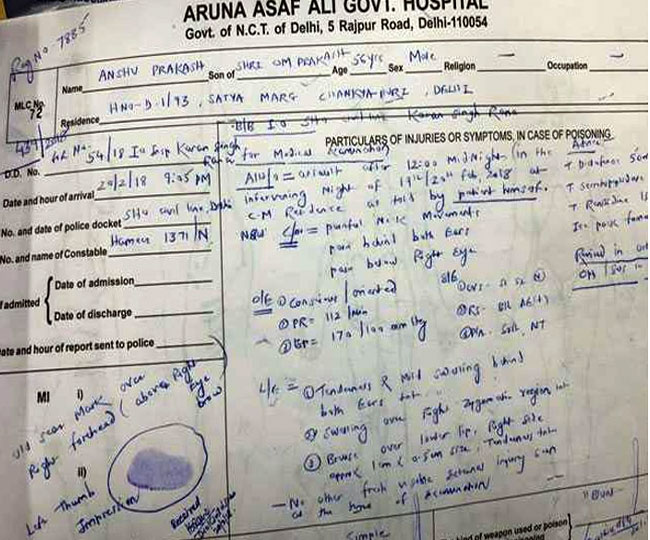 ARUNA ASAF ALI GOVT. HOSPITAL
Govt. of N.C.T. of Delhi, 5 Rajpur Road, Delhi-110054
Reg No 7885
MLC No. 72
Name ANSHU PRAKASH Son of SHRI OM PRAKASH Age 56 yrs Sex Male Religion — Occupation —
Residence HNO-D-1/93, SATYA MARG CHANKYAPURI, DELHI
B/B I.O SHO civil line Karan Singh Rana
D.D. No. 54/18 Io Insp Karan Singh Rana
Date and hour of arrival 20/2/18 9:05 PM
No. and date of police docket SHO civil line, Delhi
No. and name of Constable 1371/N
If admitted
Date of admission
Date of discharge
Date and hour of report sent to police
PARTICULARS OF INJURIES OR SYMPTOMS, IN CASE OF POISONING
for Medical Examination
assault after 12:00 MidNight (in the
intervening Night of 19th/20th Feb, 2018 at
C.M Residence as told by patient himself.
C/o = painful Neck Movements
pain behind both Ears
pain below Right Eye
O/E ① Conscious / oriented
② PR = 112 /min
③ BP = 170/100 mm Hg
S/E
① CVS -
② RS -
③ P/A. Soft, NT
L/E = ① Tenderness & Mild swelling behind
both Ears
② Swelling over Right Zygomatic region
③ Bruise over lower lip, Right side
approx 1 cm x 0.5 cm size, Tenderness
— No other fresh visible external injury seen
at the time of examination
Advice
T
T
T
MI
i) Old scar Mark over
Right forehead (above Right
Eye brow)
ii) Left Thumb
Impression
Received
Simple
Kind of weapon used or poison
Blunt